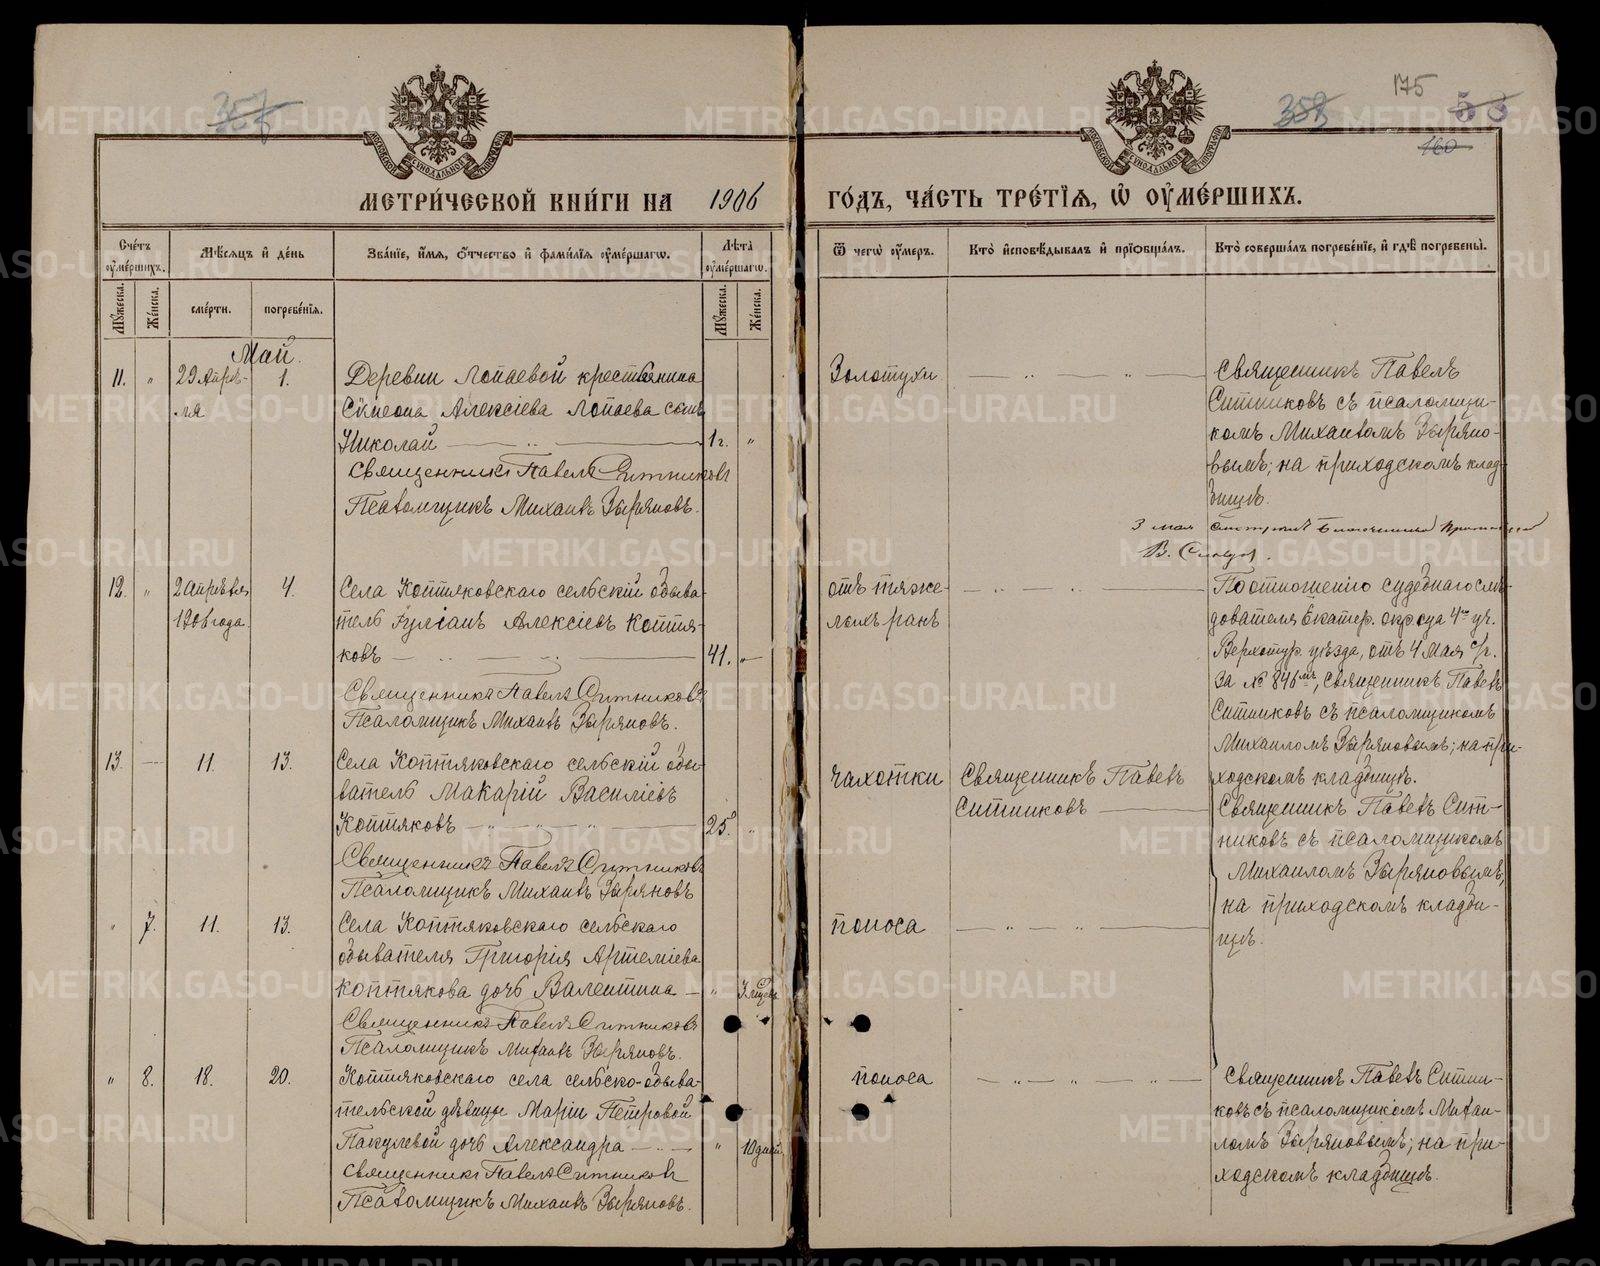 357
358
175
53
160
МЕТРИ́ЧЕСКОЙ КНИ́ГИ НА 1906 ГО́ДЪ, ЧА́СТЬ ТРЕ́ТІѦ, Ѡ҆ ОУ҆МЕ́РШИХЪ.
Сче́тъ оу҆ме́ршихъ.
Мѣ́сѧцъ и҆ де́нь
Зва́нїе, и҆́мѧ, ѻ҆́тчество и҆ фамилїѧ оу҆ме́ршагѡ.
Лѣ́та оу҆ме́ршагѡ.
Ѿ чегѡ̀ оу҆́меръ.
Кто̀ и҆сповѣ́дывалъ и҆ прїѡбща́лъ.
Кто̀ соверша́лъ погребе́нїе, и҆ гдѣ̀ погребены̀.
Мꙋ́жеска.
Же́нска.
сме́рти.
погребе́нїѧ.
Мꙋ́жеска.
Же́нска.
Май.
11. „ 29 Апрѣ- 1. Деревни Лопаевой крестьянина
ля Сѵмеона Алексіева Лопаева сынъ
Николай 1 г. „
Священникъ Павелъ Ситниковъ
Псаломщикъ Михаилъ Зыряновъ.
Золотухи
Священникъ Павелъ
Ситниковъ съ псаломщи-
комъ Михаиломъ Зыряно-
вымъ; на приходскомъ клад-
бищѣ.
3 мая смотрѣлъ Благочинный
12. „ 2 Апрѣля 4. Села Коптяковскаго сельскій обыва-
1906 года. тель Іуліанъ Алексіевъ Коптя-
ковъ 41. „
Священникъ Павелъ Ситниковъ
Псаломщикъ Михаилъ Зыряновъ.
отъ тяже-
лыхъ ранъ
По отношенію судебнаго слѣ-
дователя Екатер. окр суда 4го уч.
Верхотур. уѣзда, отъ 4 Мая с/г.
за № 846мъ, Священникъ Павелъ
Ситниковъ съ псаломщикомъ
Михаиломъ Зыряновымъ; на при-
ходскомъ кладбищѣ.
13. — 11. 13. Села Коптяковскаго сельскій обы-
ватель Макарій Василіевъ
Коптяковъ 25. „
Священникъ Павелъ Ситниковъ
Псаломщикъ Михаилъ Зыряновъ
чахотки Священникъ Павелъ
Ситниковъ
Священникъ Павелъ Сит-
никовъ съ псаломщикомъ
Михаиломъ Зыряновымъ,
на приходскомъ кладби-
щѣ.
„ 7. 11. 13. Села Коптяковскаго сельскаго
обывателя Григорія Артеміева
Коптякова дочь Валентина „
Священникъ Павелъ Ситниковъ
Псаломщикъ Михаилъ Зыряновъ.
поноса
„ 8. 18. 20. Коптяковскаго села сельско-обыва-
тельской дѣвицы Маріи Петровой
Пакулевой дочь Александра „ 10 дней
Священникъ Павелъ Ситниковъ
Псаломщикъ Михаилъ Зыряновъ.
поноса
Священникъ Павелъ Ситни-
ковъ съ псаломщикомъ Михаи-
ломъ Зыряновымъ; на при-
ходскомъ кладбищѣ.
METRIKI.GASO-URAL.RU